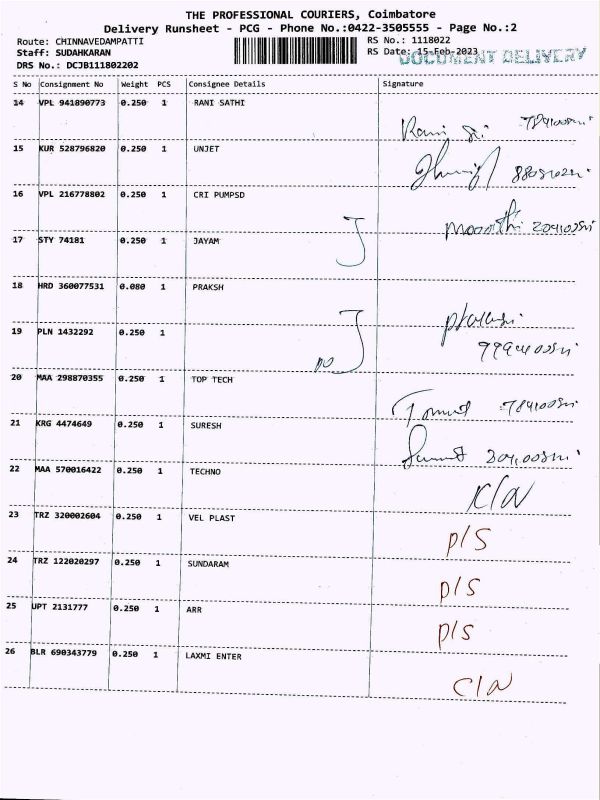 THE PROFESSIONAL COURIERS, Coimbatore
Delivery Runsheet - PCG - Phone No.:0422-3505555 - Page No.:2
Route: CHINNAVEDAMPATTI RS No.: 1118022
Staff: SUDAHKARAN RS Date: 15-Feb-2023
DOCUMENT DELIVERY
DRS No.: DCJB111802202
S No Consignment No Weight PCS Consignee Details Signature
14 VPL 941890773 0.250 1 RANI SATHI
Rani
15 KUR 528796820 0.250 1 UNJET
16 VPL 216778802 0.250 1 CRI PUMPSD
Moorthi
17 STY 74181 0.250 1 JAYAM
J
18 HRD 360077531 0.080 1 PRAKSH
19 PLN 1432292 0.250 1
J
20 MAA 298870355 0.250 1 TOP TECH
21 KRG 4474649 0.250 1 SURESH
22 MAA 570016422 0.250 1 TECHNO
23 TRZ 320002604 0.250 1 VEL PLAST
P/S
24 TRZ 122020297 0.250 1 SUNDARAM
P/S
25 UPT 2131777 0.250 1 ARR
P/S
26 BLR 690343779 0.250 1 LAXMI ENTER
C/N